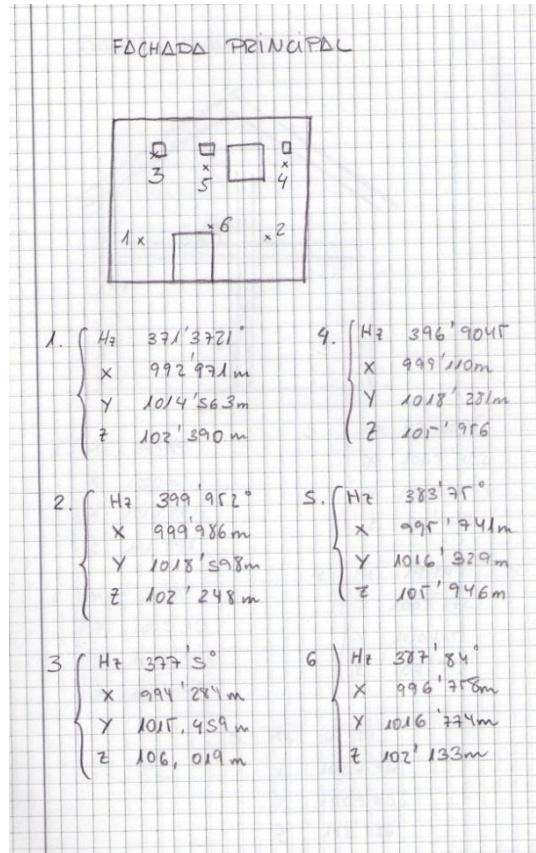 FACHADA PRINCIPAL
3
5
4
1 x
x 6
x 2
1. Hz 371'3721°
X 992'971m
Y 1014'563m
Z 102'390m
2. Hz 399'952°
X 999'986m
Y 1018'598m
Z 102'248m
3 Hz 377'5°
X 994'284m
Y 1015,459m
Z 106,019m
4. Hz 396'9045
X 999'110m
Y 1018'281m
Z 105'956
5. Hz 383'75°
X 995'741m
Y 1016'329m
Z 105'946m
6 Hz 387'84°
X 996'758m
Y 1016'774m
Z 102'133m